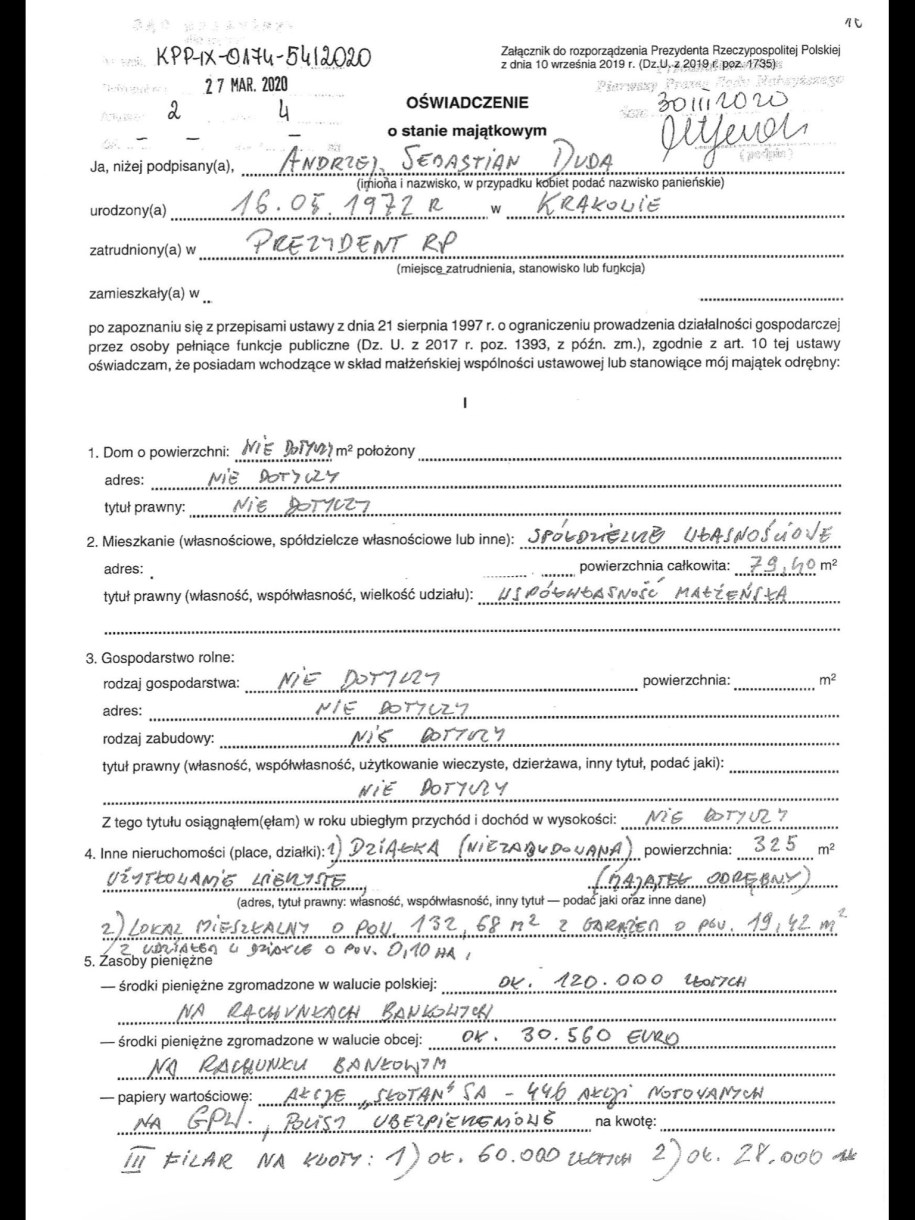 10
KPP-IX-0174-54/2020
Załącznik do rozporządzenia Prezydenta Rzeczypospolitej Polskiej
z dnia 10 września 2019 r. (Dz.U. z 2019 r. poz. 1735)
27 MAR. 2020
Pierwszy Prezes Sądu Najwyższego
2 4
OŚWIADCZENIE
30 III 2020
o stanie majątkowym
— — —
(podpis)
Ja, niżej podpisany(a), ANDRZEJ, SEBASTIAN DUDA
(imiona i nazwisko, w przypadku kobiet podać nazwisko panieńskie)
urodzony(a) 16.05.1972 R w KRAKOWIE
zatrudniony(a) w PREZYDENT RP
(miejsce zatrudnienia, stanowisko lub funkcja)
zamieszkały(a) w
po zapoznaniu się z przepisami ustawy z dnia 21 sierpnia 1997 r. o ograniczeniu prowadzenia działalności gospodarczej
przez osoby pełniące funkcje publiczne (Dz. U. z 2017 r. poz. 1393, z późn. zm.), zgodnie z art. 10 tej ustawy
oświadczam, że posiadam wchodzące w skład małżeńskiej wspólności ustawowej lub stanowiące mój majątek odrębny:
I
1. Dom o powierzchni: NIE DOTYCZY m² położony
adres: NIE DOTYCZY
tytuł prawny: NIE DOTYCZY
2. Mieszkanie (własnościowe, spółdzielcze własnościowe lub inne): SPÓŁDZIELCZE WŁASNOŚCIOWE
adres: powierzchnia całkowita: 79,40 m²
tytuł prawny (własność, współwłasność, wielkość udziału): WSPÓŁWŁASNOŚĆ MAŁŻEŃSKA
3. Gospodarstwo rolne:
rodzaj gospodarstwa: NIE DOTYCZY powierzchnia: m²
adres: NIE DOTYCZY
rodzaj zabudowy: NIE DOTYCZY
tytuł prawny (własność, współwłasność, użytkowanie wieczyste, dzierżawa, inny tytuł, podać jaki):
NIE DOTYCZY
Z tego tytułu osiągnąłem(ęłam) w roku ubiegłym przychód i dochód w wysokości: NIE DOTYCZY
4. Inne nieruchomości (place, działki): 1) DZIAŁKA (NIEZABUDOWANA) powierzchnia: 325 m²
UŻYTKOWANIE WIECZYSTE, (MAJĄTEK ODRĘBNY)
(adres, tytuł prawny: własność, współwłasność, inny tytuł — podać jaki oraz inne dane)
2) LOKAL MIESZKALNY O POW. 132,68 m² Z GARAŻEM O POW. 19,42 m²
Z UDZIAŁEM W DZIAŁCE O POW. 0,10 HA,
5. Zasoby pieniężne
— środki pieniężne zgromadzone w walucie polskiej: OK. 120.000 ZŁOTYCH
NA RACHUNKACH BANKOWYCH
— środki pieniężne zgromadzone w walucie obcej: OK. 30.560 EURO
NA RACHUNKU BANKOWYM
— papiery wartościowe: AKCJE „SKOTAN" SA - 446 AKCJI NOTOWANYCH
NA GPW., POLISY UBEZPIECZENIOWE na kwotę:
III FILAR NA KWOTY: 1) OK. 60.000 ZŁOTYCH 2) OK. 28.000 ZŁ